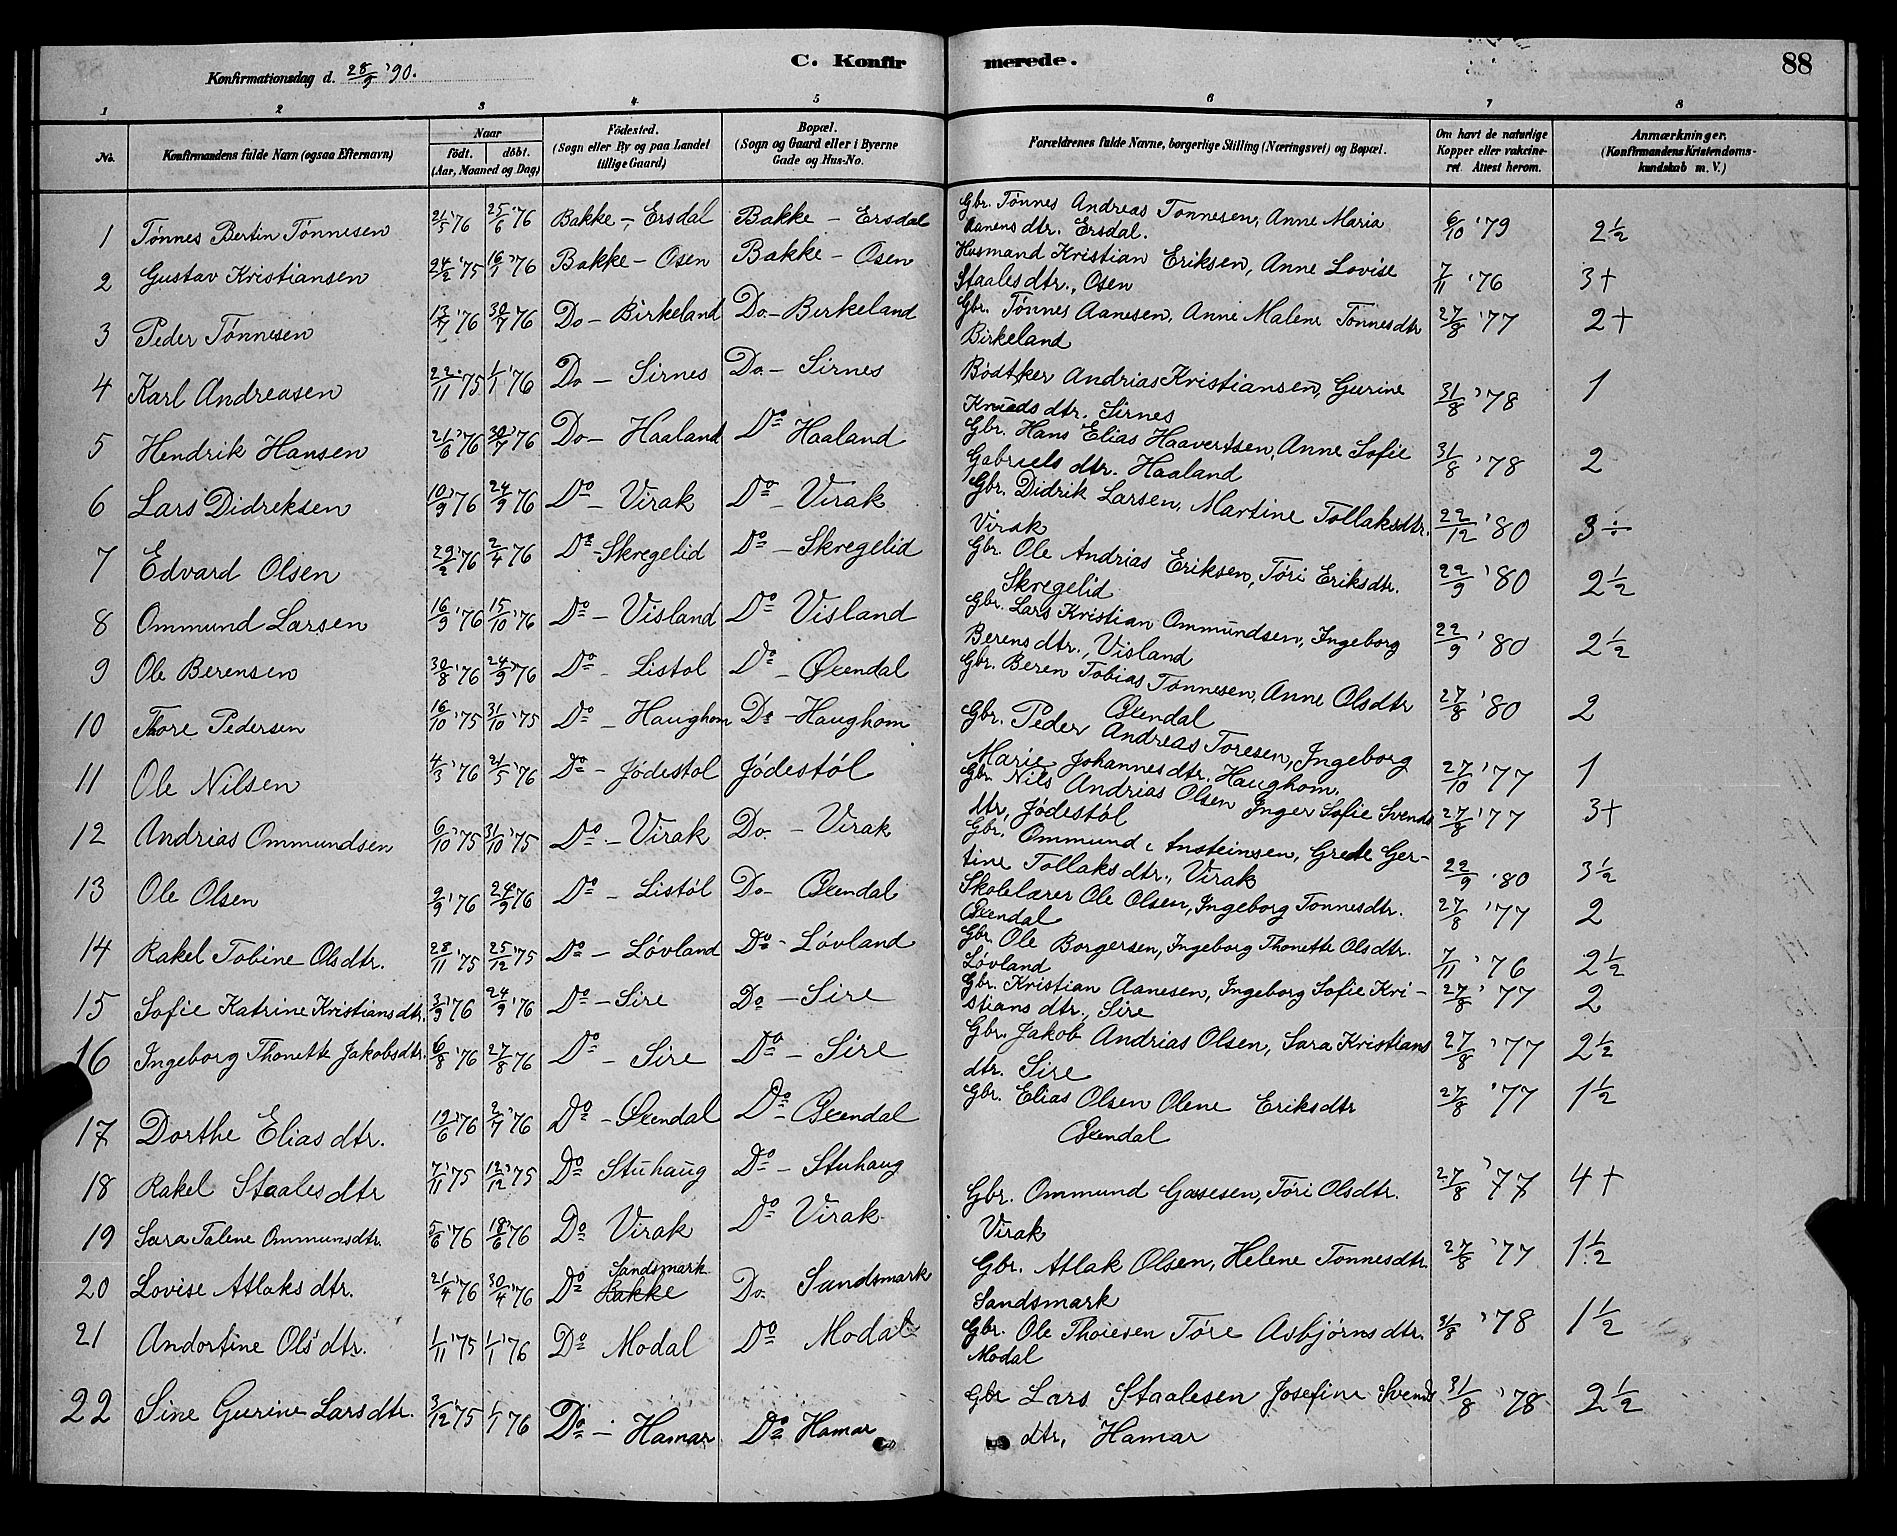 Konfirmationsdag d. 28/9 '90.
C. Konfirmerede.
88
1 2 3 4 5 6 7 8
No. | Konfirmandens fulde Navn (ogsaa Efternavn) | Naar födt. döbt. (Aar, Maaned og Dag) | Födested. (Sogn eller By og paa Landet tillige Gaard) | Bopæl. (Sogn og Gaard eller i Byerne Gade og Hus-No. | Forældrenes fulde Navne, borgerlige Stilling (Næringsvei) og Bopæl. | Om havt de naturlige Kopper eller vaccineret. Attest herom. | Anmærkninger. (Konfirmandens Kristendomskundskab m. V.)
1 Tønnes Bertin Tønnesen | 21/5 '76 | 25/6 '76 | Bakke - Ersdal | Bakke - Ersdal | Gbr. Tønnes Andreas Tønnesen, Anne Maria Aanensdtr. Ersdal. | 6/10 '79 | 2½
2 Gustav Kristiansen | 24/2 '75 | 16/1 '76 | Bakke - Osen | Bakke - Osen | Husmand Kristian Eriksen, Anne Lovise Staalesdtr., Osen | 7/11 '76 | 3+
3 Peder Tønnesen | 13/7 '76 | 30/7 '76 | Do - Birkeland | Do - Birkeland | Gbr. Tønnes Aanesen, Anne Malene Tønnesdtr Birkeland | 27/8 '77 | 2+
4 Karl Andreasen | 22/11 '75 | 1/1 '76 | Do - Sirnes | Do - Sirnes | Bödtker Andrias Kristiansen, Gurine Knudsdtr. Sirnes | 31/8 '78 | 1
5 Hendrik Hansen | 21/6 '76 | 30/7 '76 | Do - Haaland | Do Haaland | Gbr. Hans Elias Haavertsen, Anne Sofie Gabrielsdtr. Haaland | 31/8 '78 | 2
6 Lars Didreksen | 10/9 '76 | 24/9 '76 | Do - Virak | Do - Virak | Gbr. Didrik Larsen, Martine Tollaksdtr. Virak | 22/12 '80 | 3÷
7 Edvard Olsen | 29/2 '76 | 2/4 '76 | Do - Skregelid | Do - Skregelid | Gbr. Ole Andrias Eriksen, Töri Eriksdtr. Skregelid | 22/9 '80 | 2½
8 Ommund Larsen | 16/9 '76 | 15/10 '76 | Do - Visland | Do Visland | Gbr. Lars Kristian Ommundsen, Ingeborg Berensdtr., Visland | 22/9 '80 | 2½
9 Ole Berensen | 30/8 '76 | 24/9 '76 | Do - Listol | Do - Øxendal | Gbr. Beren Tobias Tønnesen, Anne Olsdtr Øxendal | 27/8 '80 | 2
10 Thore Pedersen | 16/10 '75 | 31/10 '75 | Do - Haughom | Do - Haughom | Gbr. Peder Andreas Toresen, Ingeborg Marie Johannesdtr. Haughom. | 27/10 '77 | 1
11 Ole Nilsen | 4/3 '76 | 21/5 '76 | Do - Jödestol | Jödestöl | Gbr. Nils Andrias Olsen Inger Sofie Svends dtr, Jödestöl | 27/8 '77 | 3+
12 Andrias Ommundsen | 6/10 '75 | 31/10 '75 | Do - Virak | Do. - Virak | Gbr. Ommund Ansteinsen, Grete Gertine Tollaksdtr., Virak | 22/9 '80 | 3½
13 Ole Olsen | 2/9 '76 | 24/9 '76 | Do - Listöl | Do - Øxendal | Skolelærer Ole Olsen, Ingeborg Tønnesdtr. Øxendal | 27/8 '77 | 2
14 Rakel Tobine Olsdtr. | 28/11 '75 | 25/12 '75 | Do - Lövland | Do - Lövland | Gbr. Ole Borgersen, Ingeborg Thonette Olsdtr. Lövland | 7/11 '76 | 2½
15 Sofie Katrine Kristiansdtr. | 3/9 '76 | 24/9 '76 | Do - Sire | Do - Sire | Gbr. Kristian Aanesen, Ingeborg Sofie Kristiansdtr., Sire | 27/8 '77 | 2
16 Ingeborg Thonette Jakobsdtr. | 6/8 '76 | 27/8 '76 | Do - Sire | Do - Sire | Gbr. Jakob Andrias Olsen, Sara Kristians dtr. Sire | 27/8 '77 | 2½
17 Dorthe Eliasdtr. | 12/6 '76 | 2/7 '76 | Do - Øxendal | Do Øxendal | Gbr. Elias Olsen Olene Eriksdtr Øxendal | 27/8 '77 | 1½
18 Rakel Staalesdtr | 7/11 '75 | 12/12 '75 | Do Stuhaug | Do - Stuhaug
19 Sara Talene Ommunsdtr. | 5/6 '76 | 18/6 '76 | Do Virak | Do Virak | Gbr. Ommund Gasesen, Töri Olsdtr. Virak | 27/8 '77 | 4+
20 Lovise Atlaksdtr. | 21/4 '76 | 30/4 '76 | Do Sandsmark Bakke | Do. Sandsmark | Gbr. Atlak Olsen, Helene Tønnesdtr. Sandsmark | 27/8 '77 | 1½
21 Andortine Olsdtr. | 1/11 '75 | 1/1 '76 | Do Modal | Do Modal | Gbr. Ole Thoresen Töre Asbjörnsdtr. Modal | 31/8 '78 | 1½
22 Sine Gurine Larsdtr. | 3/12 '75 | 1/1 '76 | Do - Hamar | Do Hamar | Gbr Lars Staalesen Josefine Svends dtr, Hamar | 31/8 '78 | 2½